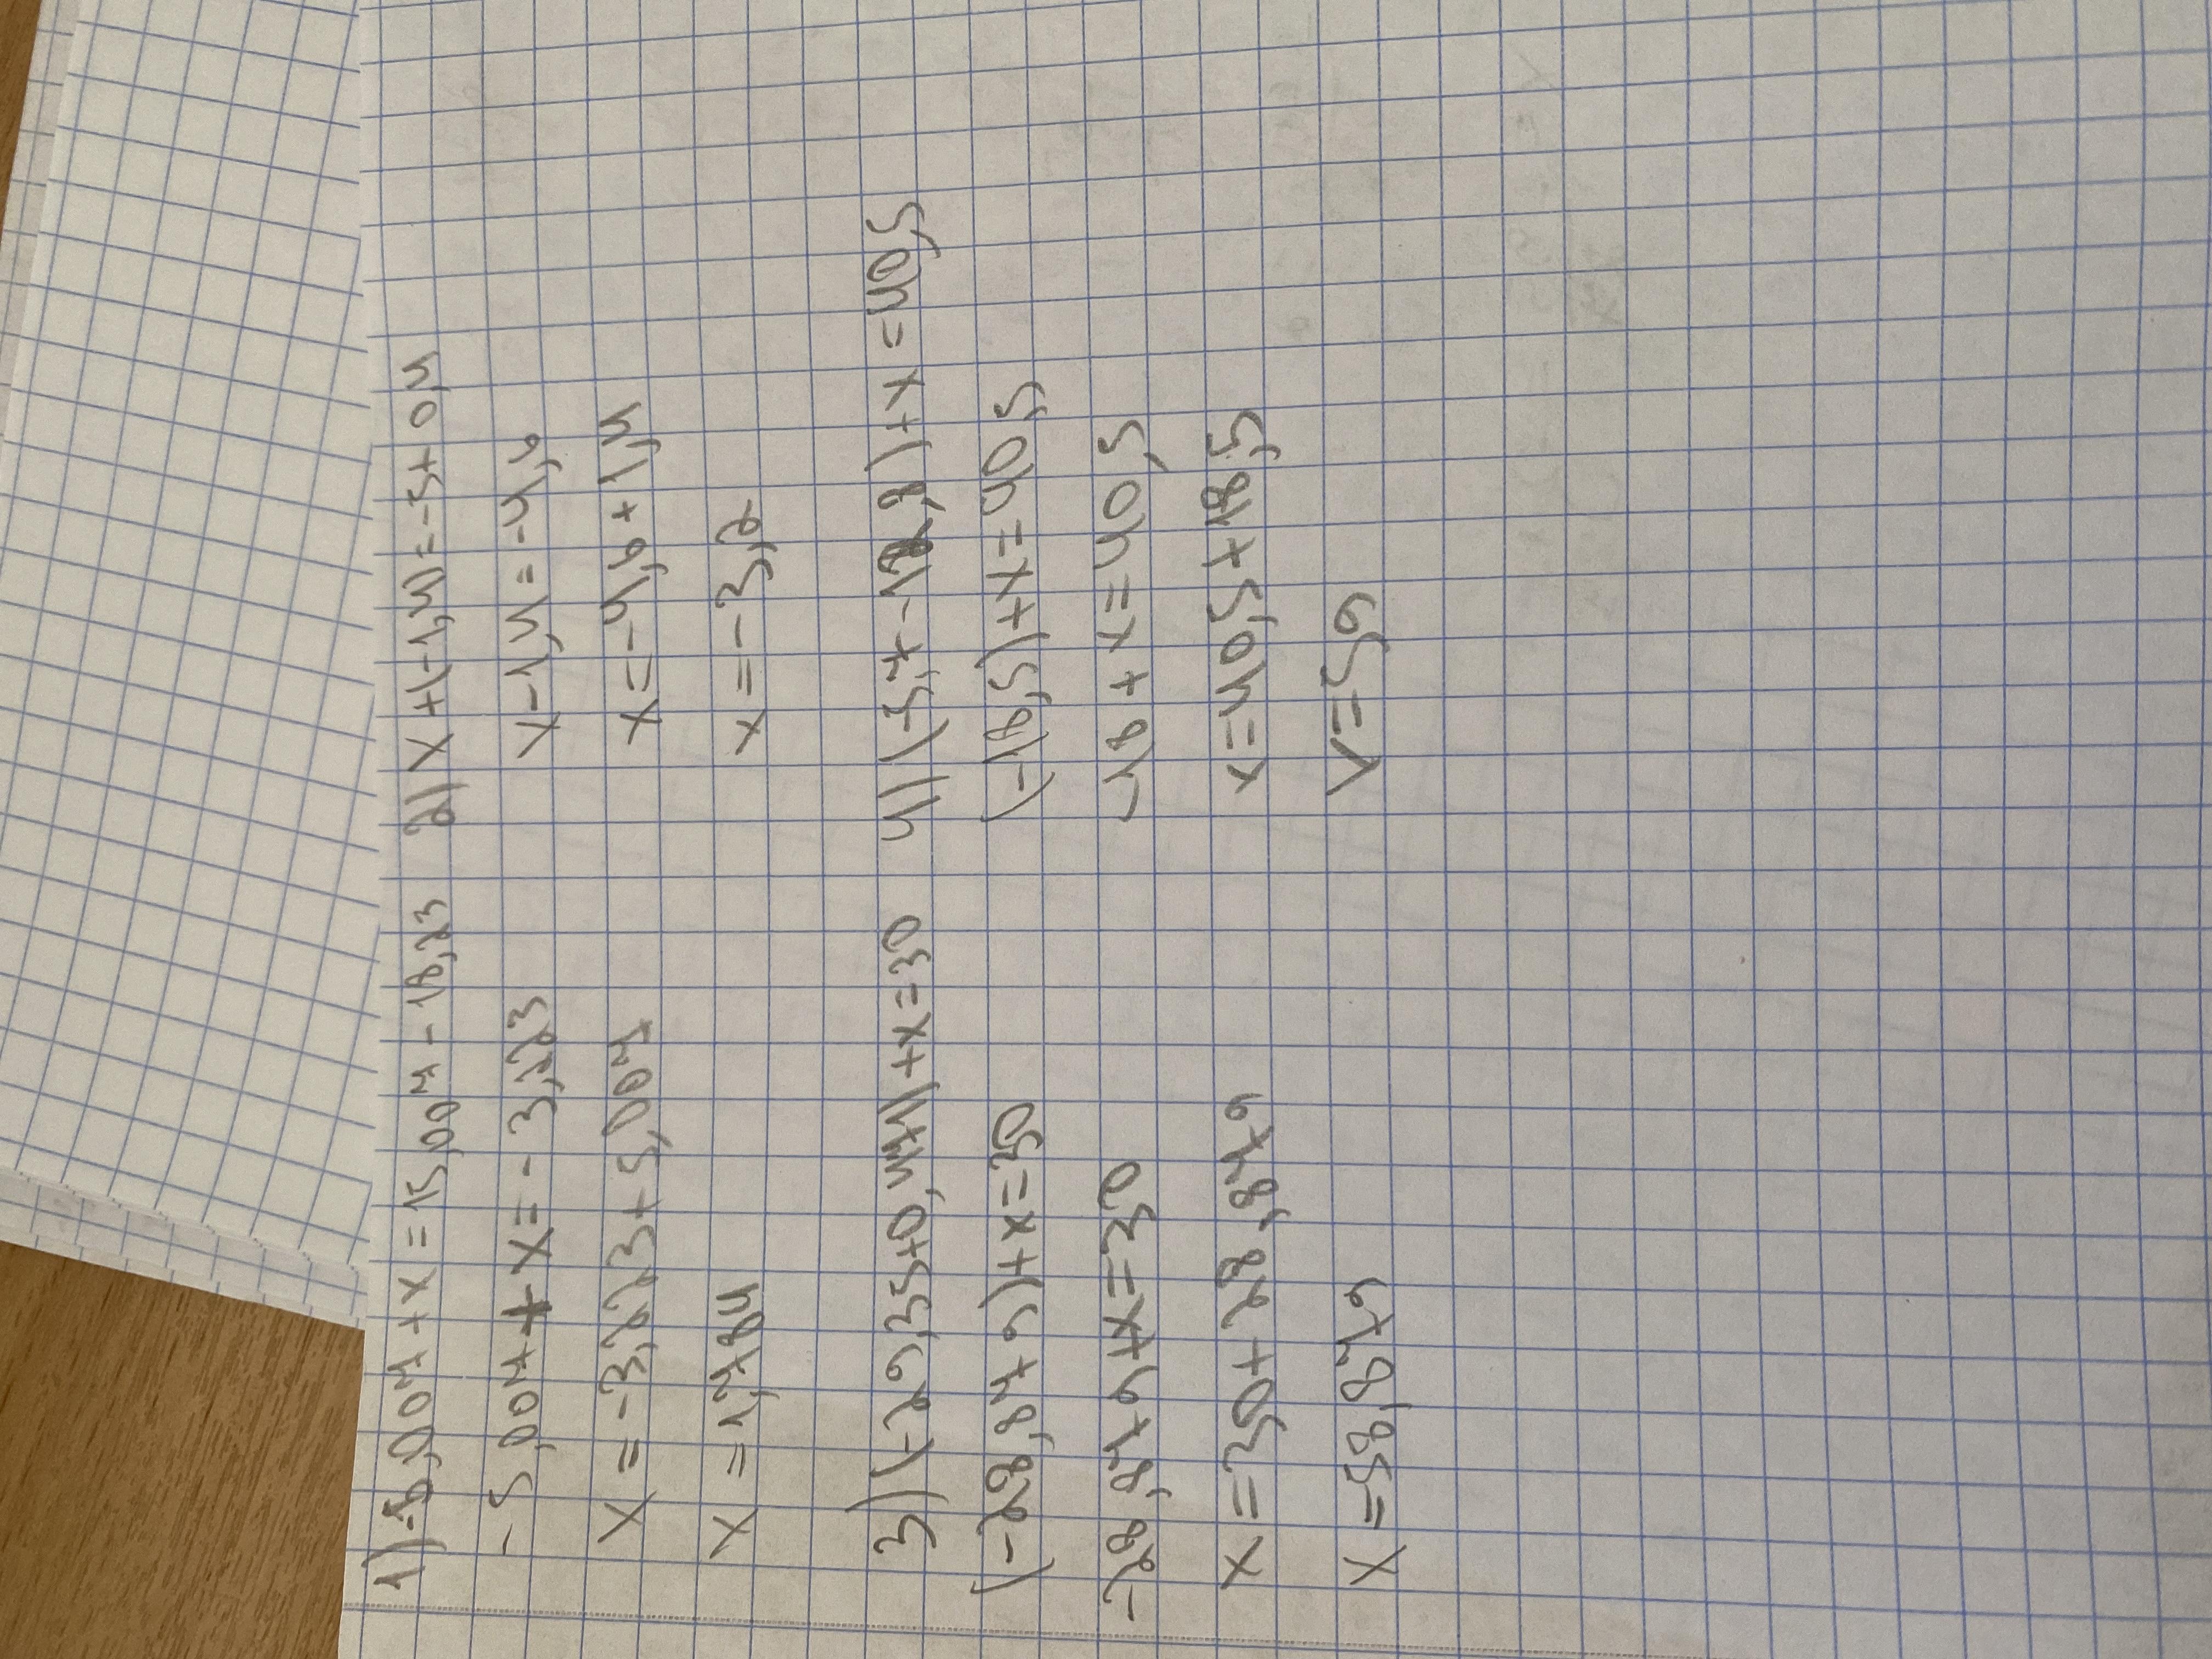 1) -5,007 + x = 15,007 - 18,23
-5,007 + x = -3,223
x = -3,223 + 5,007
x = 1,784
2) x + (-1,4) = -5 + 0,4
x - 1,4 = -4,6
x = -4,6 + 1,4
x = -3,2
3) (-29,35 + 0,471) + x = 30
(-28,879) + x = 30
-28,879 + x = 30
x = 30 + 28,879
x = 58,879
4) (-5,7 - 12,8) + x = 40,5
(-18,5) + x = 40,5
-18 + x = 40,5
x = 40,5 + 18,5
x = 59